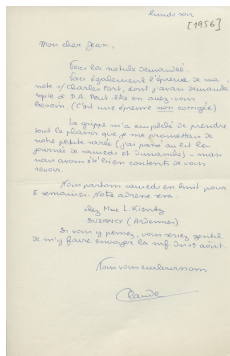 lundi soir
[1956]
Mon cher Jean,
Voici la notule demandée.
Voici également l'épreuve de ma
note s/ Charles Fort, dont j'avais demandé
copie à D.A. Peut-être en avez-vous
besoin (c'est une épreuve non corrigée)
La grippe m'a empêché de prendre
tout le plaisir que je me promettais de
notre petite soirée (j'ai passé au lit la
journée de samedi et dimanche) – mais
nous avons été bien contents de vous
revoir.
Nous partons samedi en huit pour
5 semaines. Notre adresse sera :
chez Mme L. Kientz
(Ardennes)
Si vous y pensez, vous seriez gentil
de m'y faire envoyer la nrf du 1er août.
Nous vous embrassons
Claude